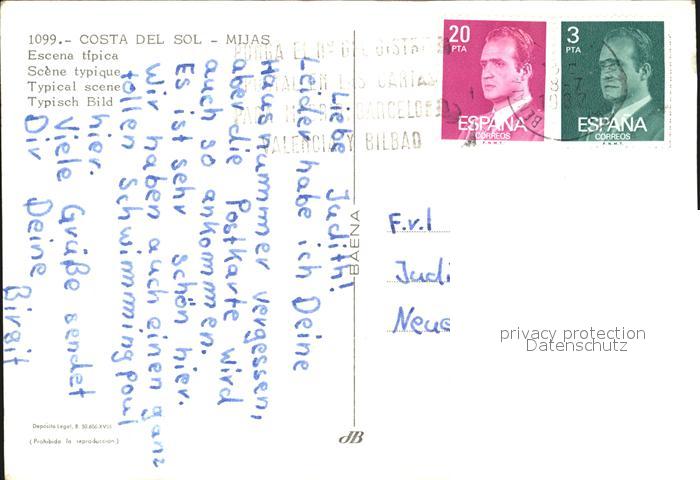 1099.- COSTA DEL SOL - MIJAS
Escena típica
Scène typique
Typical scene
Typisch Bild
20
PTA
ESPAÑA
CORREOS
F.N.M.T.
3
PTA
ESPAÑA
CORREOS
F.N.M.T.
PONGA EL Nº DEL DISTRITO
EN LAS CARTAS
PARA BARCELONA
VALENCIA Y BILBAO
Liebe Judith!
Leider habe ich Deine
Hausnummer vergessen,
aber die Postkarte wird
auch so ankommen.
Es ist sehr schön hier.
Wir haben auch einen ganz
tollen Schwimmingpoul
hier.
Viele Grüße sendet
Dir Deine Birgit
BAENA
F.v.l
Judi
Neue
privacy protection
Datenschutz
Depósito Legal, B. 50.606-XVIII
(Prohibida la reproducción)
JB